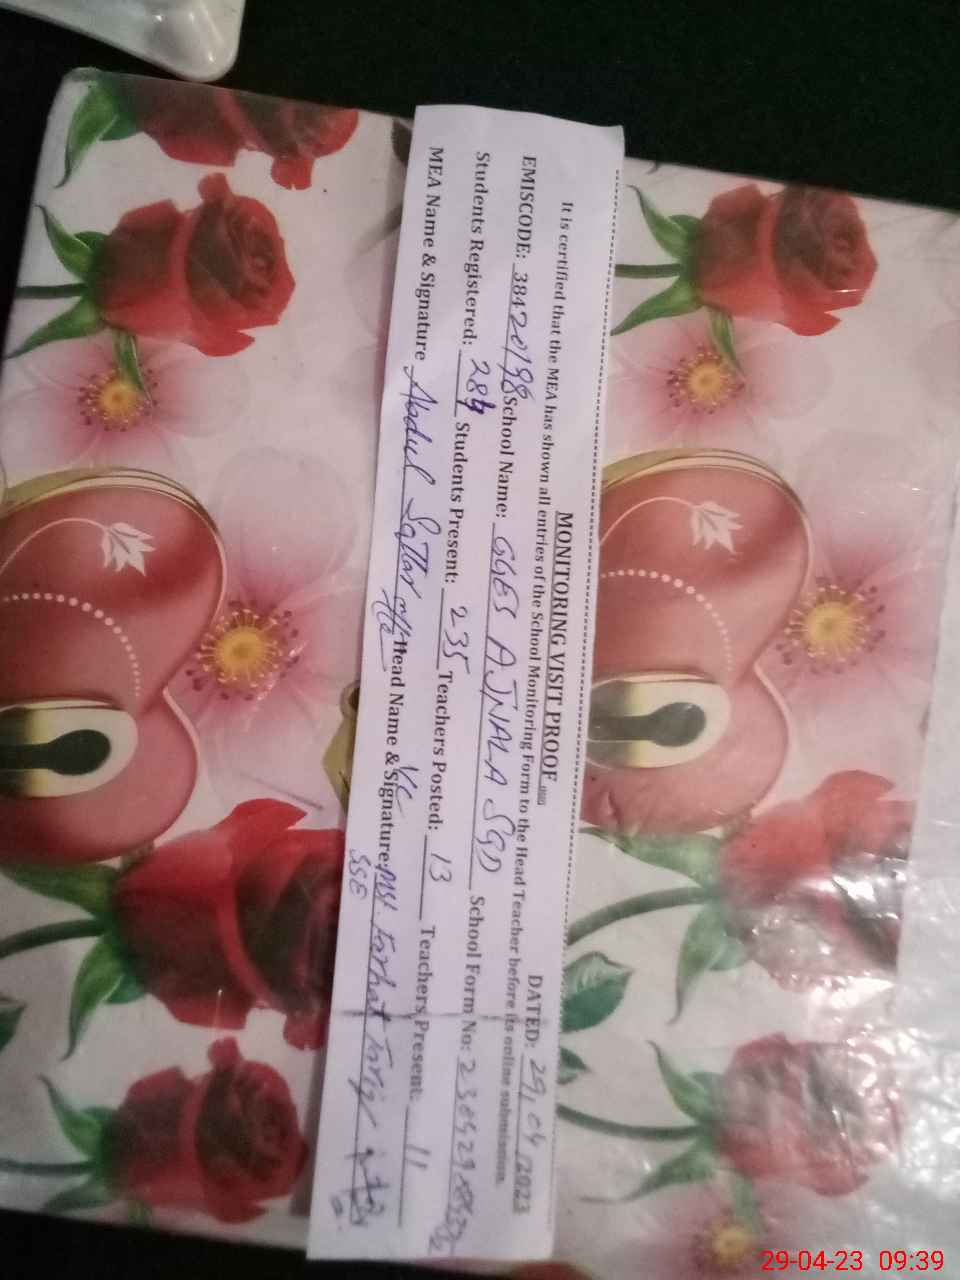 MONITORING VISIT PROOF
DATED: 29/04/2023
It is certified that the MEA has shown all entries of the School Monitoring Form to the Head Teacher before its online submission.
EMISCODE: 38420198 School Name: GGES AJNALA SGD School Form No:
Students Registered: 284 Students Present: 235 Teachers Posted: 13 Teachers Present: 11
MEA Name & Signature Abdul Sattar Head Name & Signature: Mst. Farhat
SSE
29-04-23 09:39